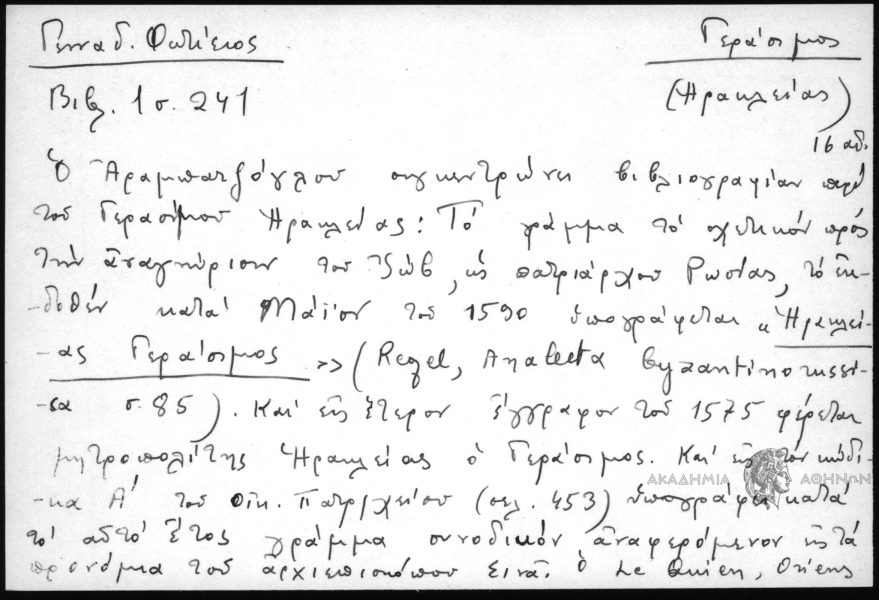 Γενναδ. Φωτίειος
Γεράσιμος
Βιβλ. 1 σ. 241
(Ἡρακλείας)
16 αἰ.
Ὁ Ἀραμπατζόγλου συγκεντρώνει βιβλιογραφίαν περὶ
τοῦ Γερασίμου Ἡρακλείας: Τὸ γράμμα τὸ σχετικὸν πρὸς
τὴν ἀναγνώρισιν τοῦ Ἰώβ, ὡς πατριάρχου Ρωσίας, τὸ ἐκ-
-δοθὲν κατὰ Μάϊον τοῦ 1590 ὑπογράφεται «Ἡρακλεί-
-ας Γεράσιμος >> (Regel, Analecta byzantinorussi-
-ca σ. 85). Καὶ εἰς ἕτερον ἔγγραφον τοῦ 1575 φέρεται
μητροπολίτης Ἡρακλείας ὁ Γεράσιμος. Καὶ εἰς τὸν κώδι-
ΑΚΑΔΗΜΙΑ ΑΘΗΝΩΝ
-κα Α' τοῦ Οἰκ. Πατρ/χείου (σελ. 453) ὑπογράφει κατὰ
τὸ αὐτὸ ἔτος γράμμα συνοδικὸν ἀναφερόμενον εἰς τὰ
προνόμια τοῦ ἀρχιεπισκόπου Σινᾶ. Ὁ Le Quien, Oriens